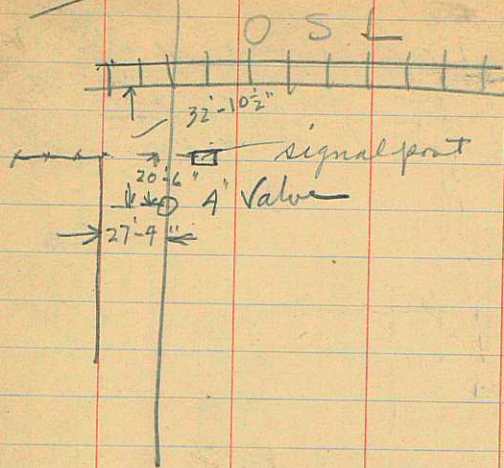 O S L
32'-10½"
signal post
20'-6"
4" Valve
27'-9"